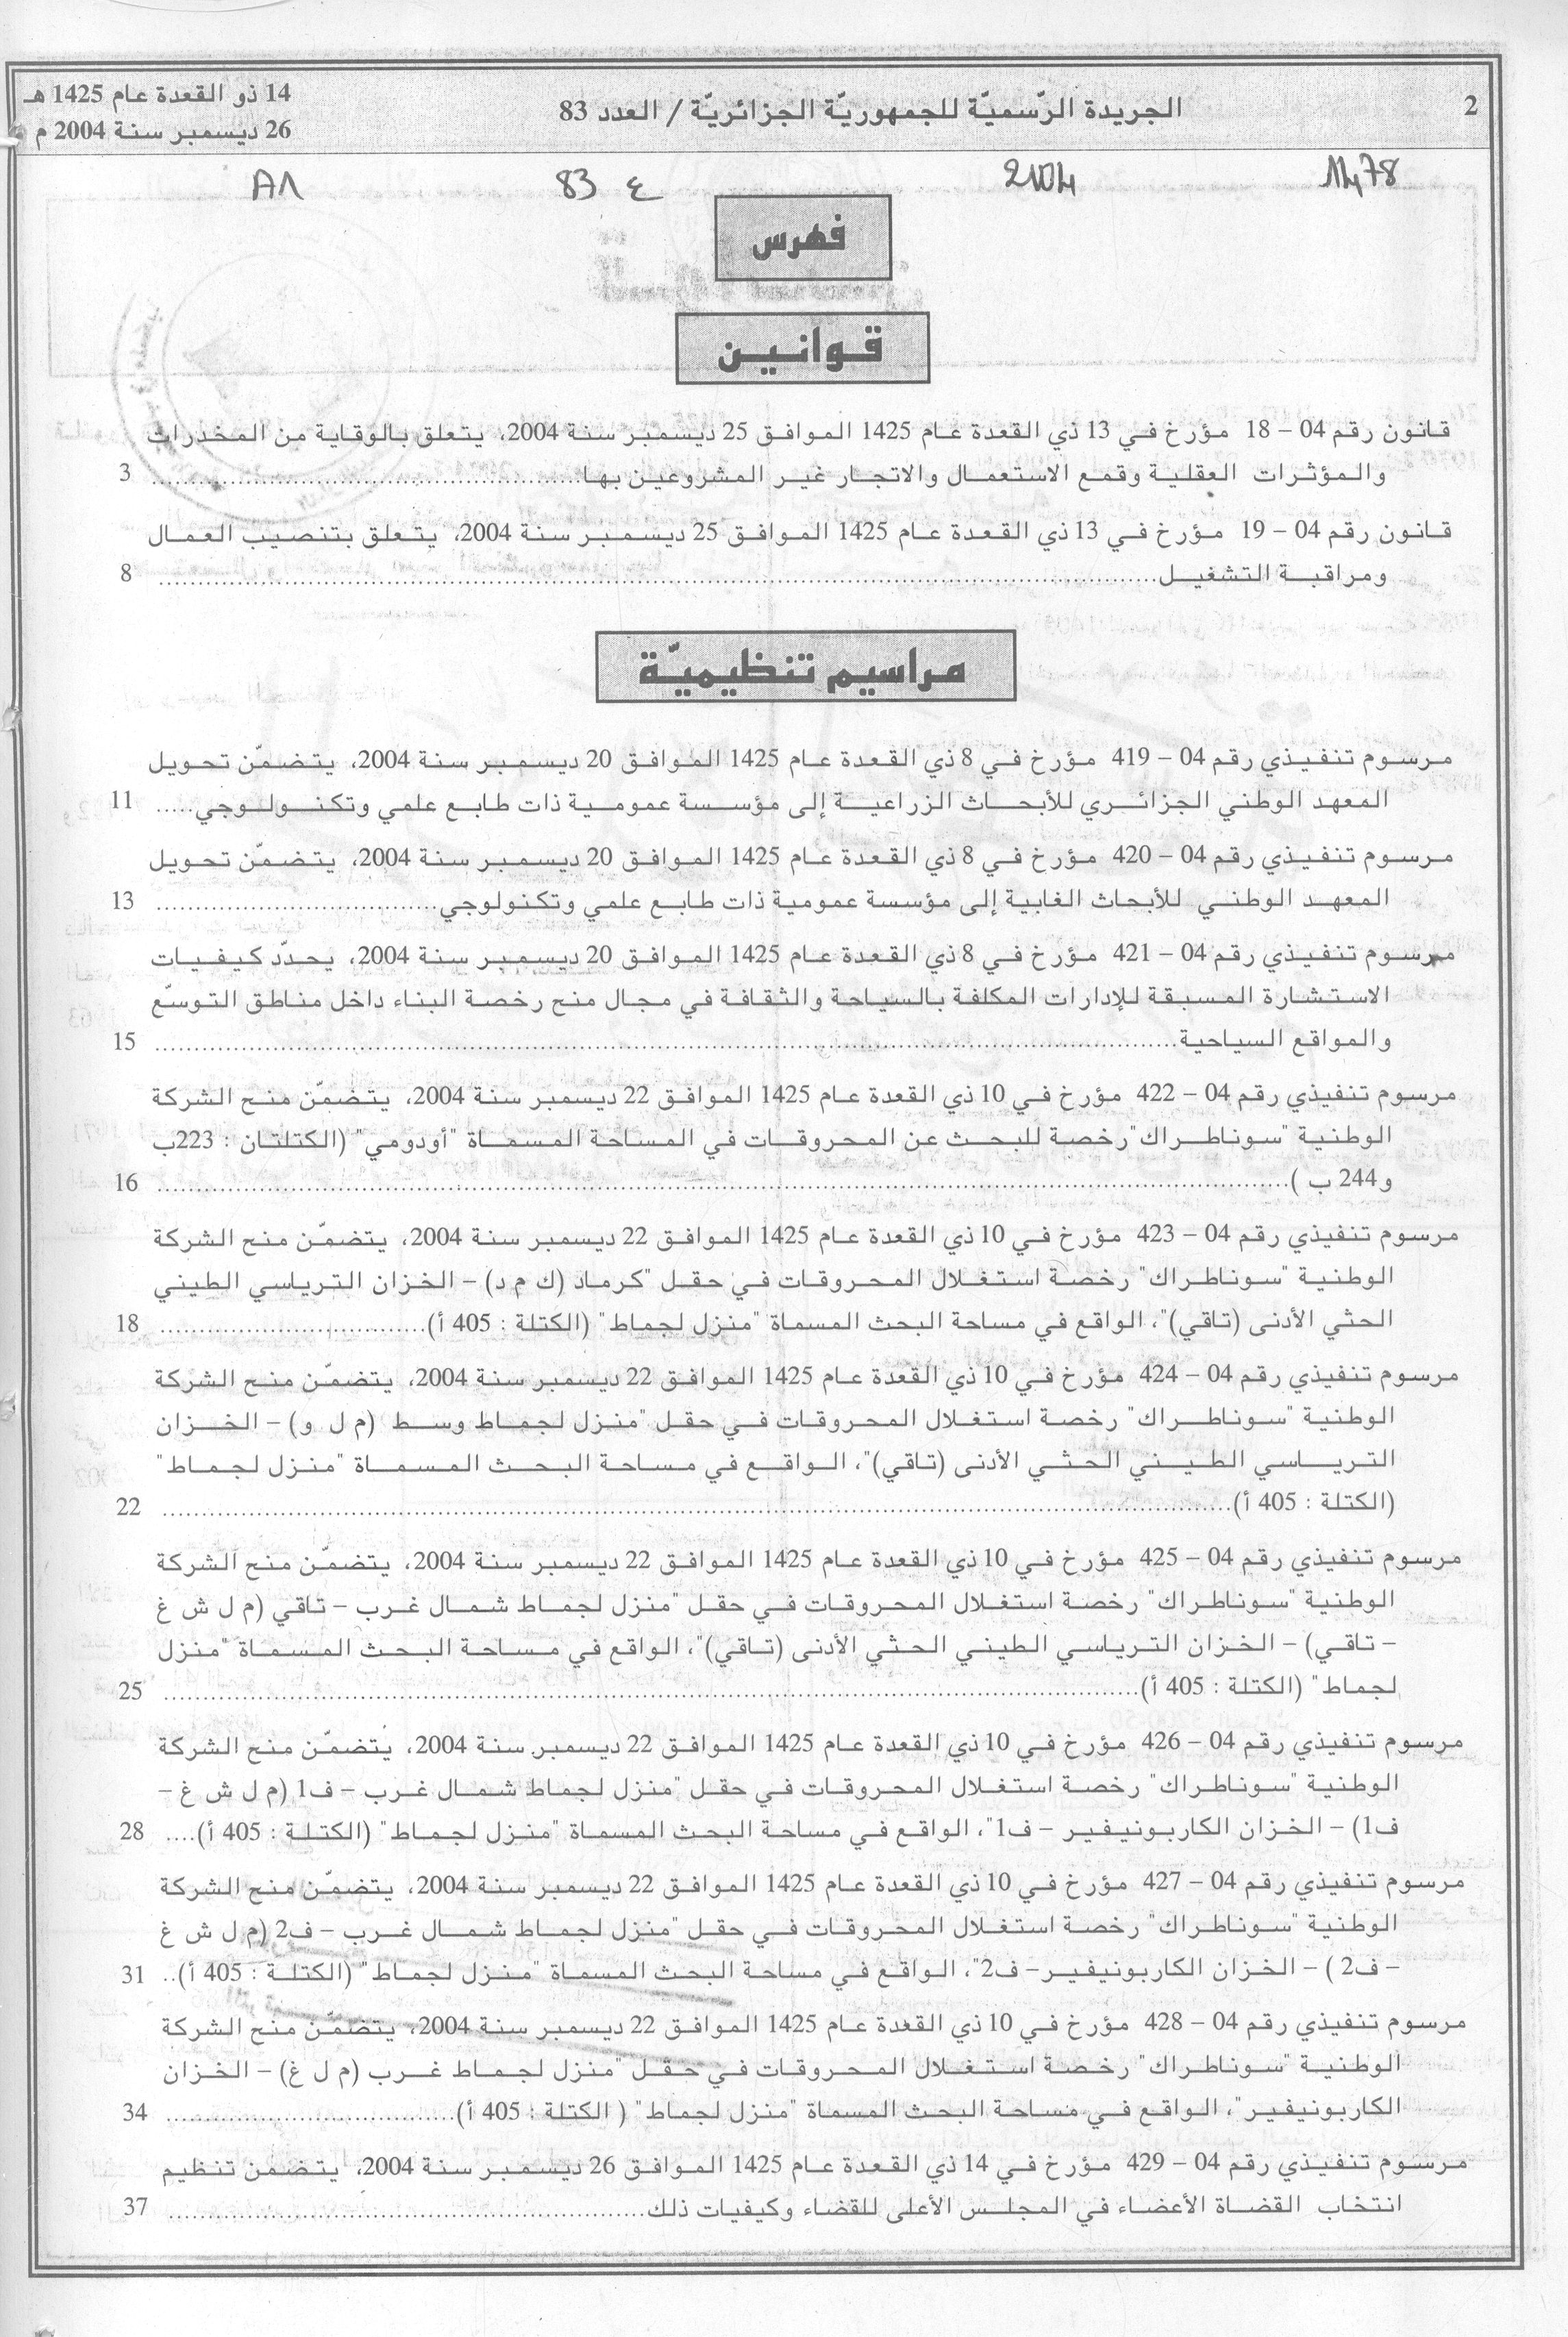 2
الجريدة الرّسميّة للجمهوريّة الجزائريّة / العدد 83
14 ذو القعدة عام 1425 هـ
26 ديسمبر سنة 2004 م
1478 2004 ع 83 A1
فهرس
قوانين
قانون رقم 04 – 18 مؤرخ في 13 ذي القعدة عام 1425 الموافق 25 ديسمبر سنة 2004، يتعلق بالوقاية من المخدرات
والمؤثرات العقلية وقمع الاستعمال والاتجار غير المشروعين بها........ 3
قانون رقم 04 – 19 مؤرخ في 13 ذي القعدة عام 1425 الموافق 25 ديسمبر سنة 2004، يتعلق بتنصيب العمال
ومراقبة التشغيل........ 8
مراسيم تنظيميّة
مرسوم تنفيذي رقم 04 – 419 مؤرخ في 8 ذي القعدة عام 1425 الموافق 20 ديسمبر سنة 2004، يتضمّن تحويل
المعهد الوطني الجزائري للأبحاث الزراعية إلى مؤسسة عمومية ذات طابع علمي وتكنولوجي..... 11
مرسوم تنفيذي رقم 04 – 420 مؤرخ في 8 ذي القعدة عام 1425 الموافق 20 ديسمبر سنة 2004، يتضمّن تحويل
المعهد الوطني للأبحاث الغابية إلى مؤسسة عمومية ذات طابع علمي وتكنولوجي........ 13
مرسوم تنفيذي رقم 04 – 421 مؤرخ في 8 ذي القعدة عام 1425 الموافق 20 ديسمبر سنة 2004، يحدّد كيفيات
الاستشارة المسبقة للإدارات المكلفة بالسياحة والثقافة في مجال منح رخصة البناء داخل مناطق التوسّع
والمواقع السياحية........ 15
مرسوم تنفيذي رقم 04 – 422 مؤرخ في 10 ذي القعدة عام 1425 الموافق 22 ديسمبر سنة 2004، يتضمّن منح الشركة
الوطنية "سوناطراك" رخصة للبحث عن المحروقات في المساحة المسماة "أودومي" (الكتلتان : 223ب
و244 ب )........ 16
مرسوم تنفيذي رقم 04 – 423 مؤرخ في 10 ذي القعدة عام 1425 الموافق 22 ديسمبر سنة 2004، يتضمّن منح الشركة
الوطنية "سوناطراك" رخصة استغلال المحروقات في حقل "كرماد (ك م د) – الخزان الترياسي الطيني
الحثي الأدنى (تاقي)"، الواقع في مساحة البحث المسماة "منزل لجماط" (الكتلة : 405 أ)........ 18
مرسوم تنفيذي رقم 04 – 424 مؤرخ في 10 ذي القعدة عام 1425 الموافق 22 ديسمبر سنة 2004، يتضمّن منح الشركة
الوطنية "سوناطراك" رخصة استغلال المحروقات في حقل "منزل لجماط وسط (م ل و) – الخزان
الترياسي الطيني الحثي الأدنى (تاقي)"، الواقع في مساحة البحث المسماة "منزل لجماط"
(الكتلة : 405 أ)........ 22
مرسوم تنفيذي رقم 04 – 425 مؤرخ في 10 ذي القعدة عام 1425 الموافق 22 ديسمبر سنة 2004، يتضمّن منح الشركة
الوطنية "سوناطراك" رخصة استغلال المحروقات في حقل "منزل لجماط شمال غرب – تاقي (م ل ش غ
– تاقي) – الخزان الترياسي الطيني الحثي الأدنى (تاقي)"، الواقع في مساحة البحث المسماة "منزل
لجماط" (الكتلة : 405 أ)........ 25
مرسوم تنفيذي رقم 04 – 426 مؤرخ في 10 ذي القعدة عام 1425 الموافق 22 ديسمبر سنة 2004، يتضمّن منح الشركة
الوطنية "سوناطراك" رخصة استغلال المحروقات في حقل "منزل لجماط شمال غرب – ف1 (م ل ش غ –
ف1) – الخزان الكاربونيفير – ف1"، الواقع في مساحة البحث المسماة "منزل لجماط" (الكتلة : 405 أ).... 28
مرسوم تنفيذي رقم 04 – 427 مؤرخ في 10 ذي القعدة عام 1425 الموافق 22 ديسمبر سنة 2004، يتضمّن منح الشركة
الوطنية "سوناطراك" رخصة استغلال المحروقات في حقل "منزل لجماط شمال غرب – ف2 (م ل ش غ
– ف2 ) – الخزان الكاربونيفير– ف2"، الواقع في مساحة البحث المسماة "منزل لجماط" (الكتلة : 405 أ).. 31
مرسوم تنفيذي رقم 04 – 428 مؤرخ في 10 ذي القعدة عام 1425 الموافق 22 ديسمبر سنة 2004، يتضمّن منح الشركة
الوطنية "سوناطراك" رخصة استغلال المحروقات في حقل "منزل لجماط غرب (م ل غ) – الخزان
الكاربونيفير"، الواقع في مساحة البحث المسماة "منزل لجماط" ( الكتلة : 405 أ)........ 34
مرسوم تنفيذي رقم 04 – 429 مؤرخ في 14 ذي القعدة عام 1425 الموافق 26 ديسمبر سنة 2004، يتضمن تنظيم
انتخاب القضاة الأعضاء في المجلس الأعلى للقضاء وكيفيات ذلك........ 37